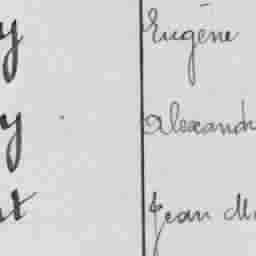 y Eugène
y Alexand
t Jean M